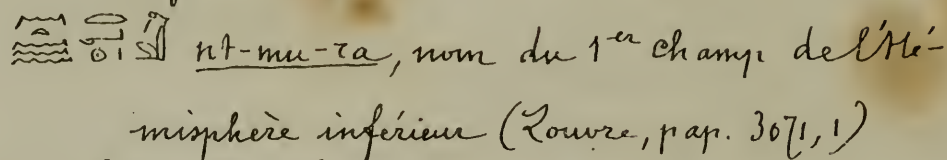 nt-mu-ra, nom du 1er champ de l'Hé-
misphère inférieur (Louvre, pap. 3071,1)